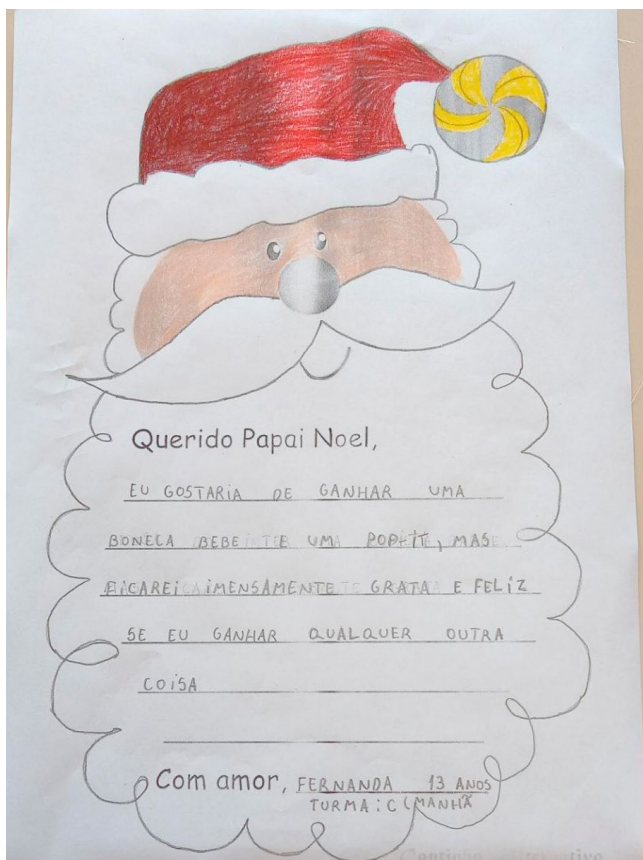 Querido Papai Noel,
EU GOSTARIA DE GANHAR UMA
BONECA BEBE E UMA POP-IT, MAS
FICAREI IMENSAMENTE GRATA E FELIZ
SE EU GANHAR QUALQUER OUTRA
COISA
Com amor, FERNANDA 13 ANOS
TURMA: C (MANHÃ